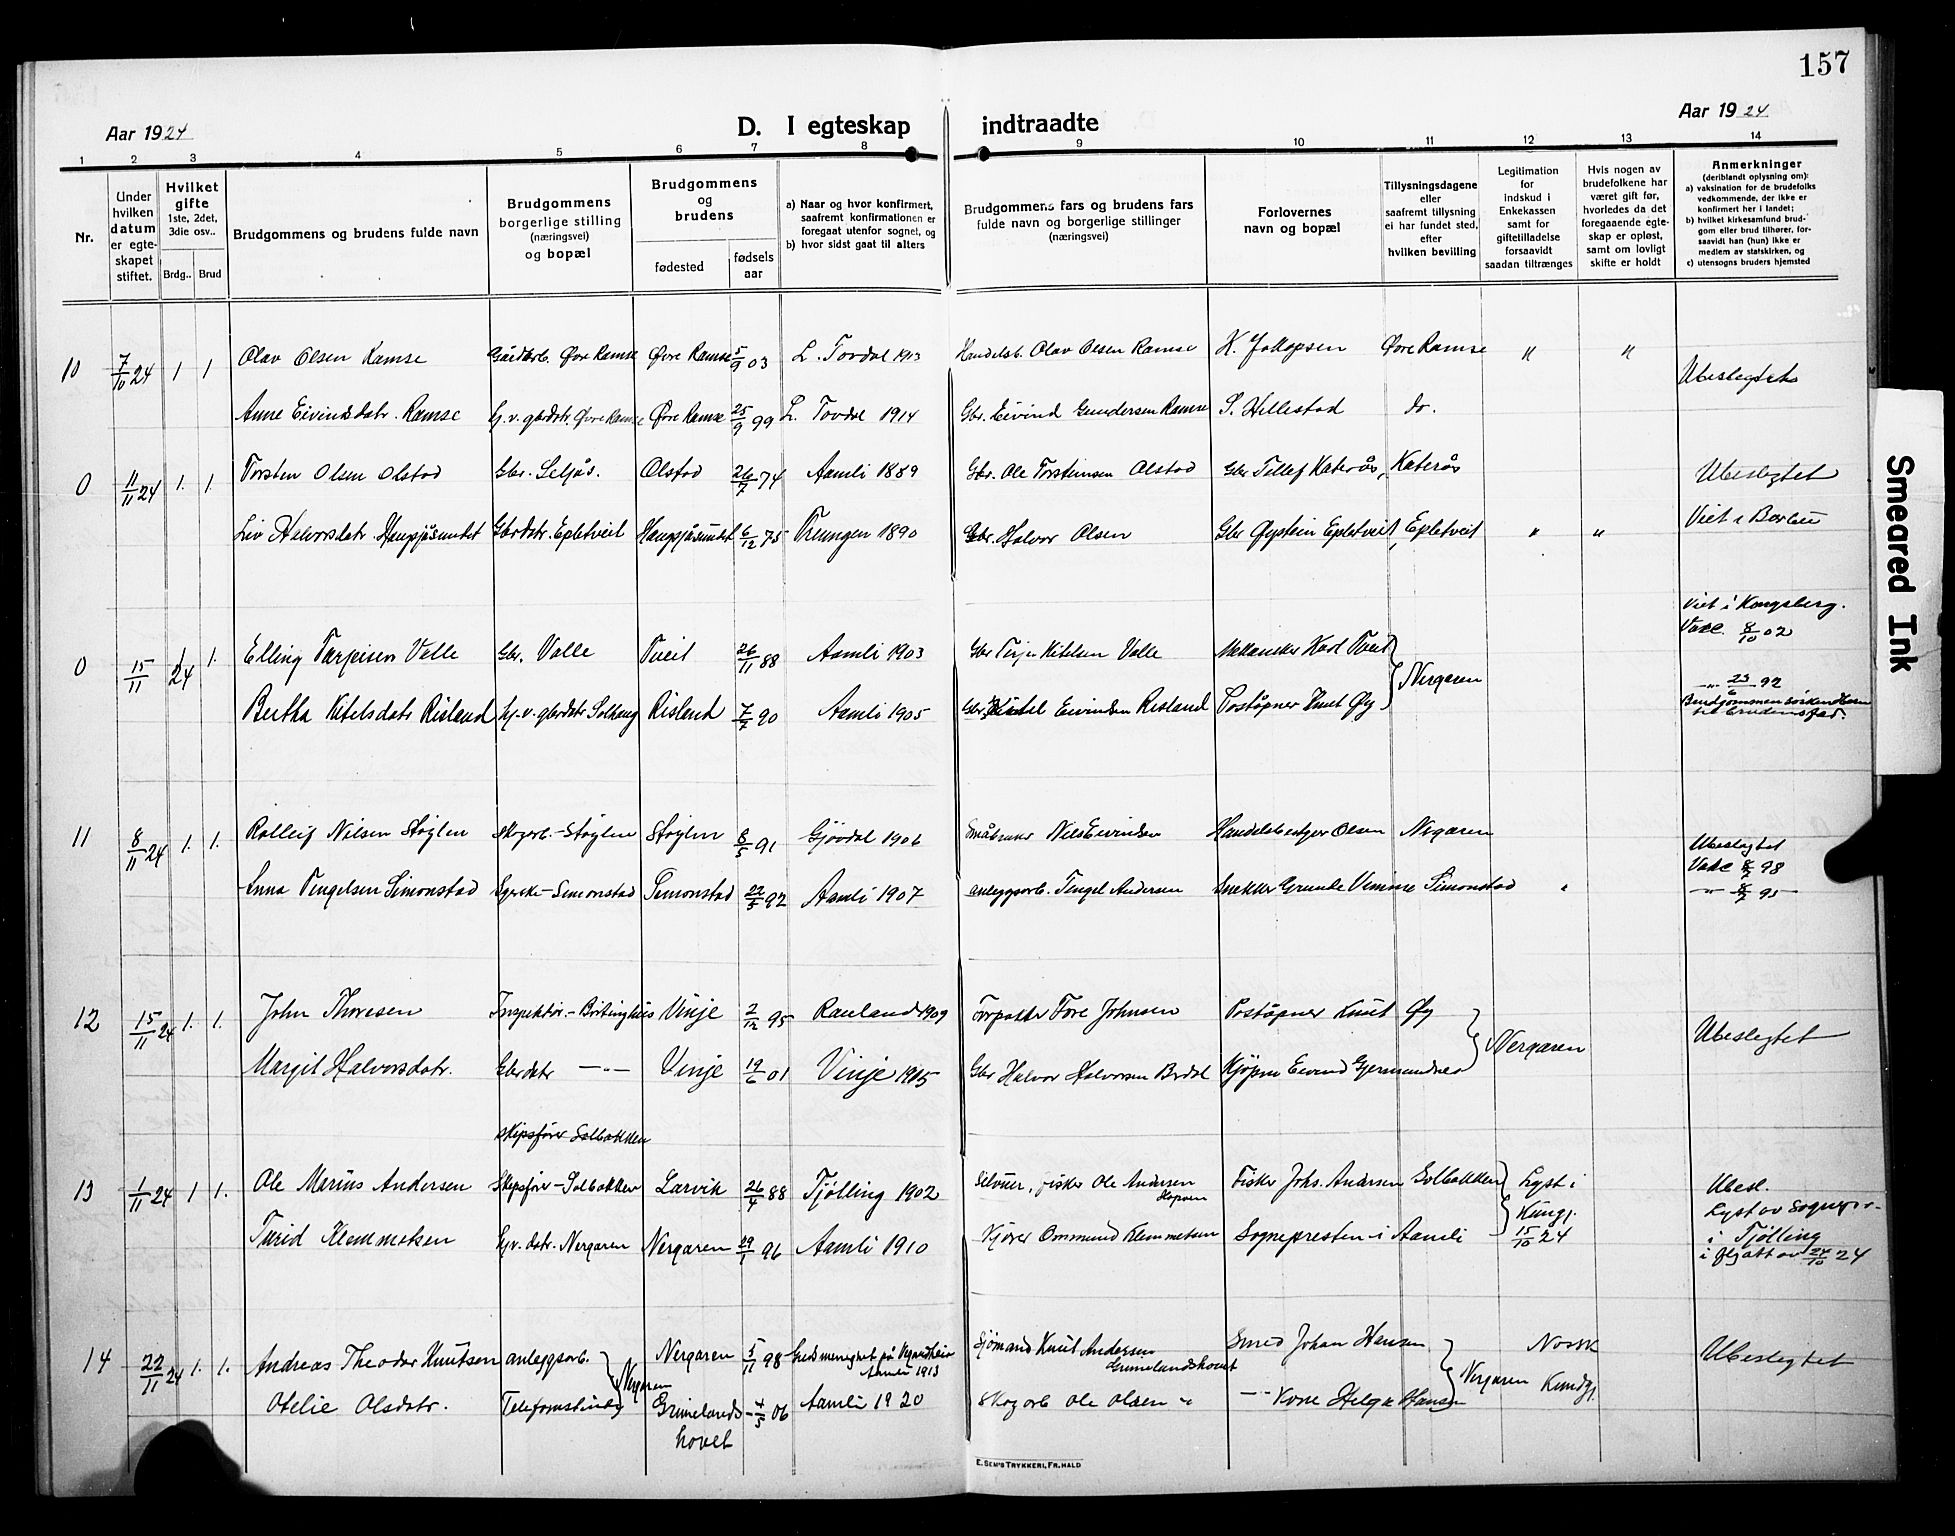 157
Aar 1924
D. I egteskap indtraadte
Aar 1924
1 2 3 4 5 6 7 8 9 10 11 12 13 14
Nr.
Under hvilken datum er egteskapet stiftet.
Hvilket gifte 1ste, 2det, 3die osv..
Brdg.. Brud
Brudgommens og brudens fulde navn
Brudgommens borgerlige stilling (næringsvei) og bopæl
Brudgommens og brudens
fødested
fødsels aar
a) Naar og hvor konfirmert, saafremt konfirmationen er foregaat utenfor sognet, og
b) hvor sidst gaat til alters
Brudgommens fars og brudens fars fulde navn og borgerlige stillinger (næringsvei)
Forlovernes navn og bopæl
Tillysningsdagene eller saafremt tillysning ei har fundet sted, efter hvilken bevilling
Legitimation for Indskud i Enkekassen samt for giftetilladelse forsaavidt saadan tiltrænges
Hvis nogen av brudefolkene har været gift før, hvorledes da det foregaaende egteskap er opløst, samt om lovligt skifte er holdt
Anmerkninger (deriblandt oplysning om):
a) vaksination for de brudefolks vedkommende, der ikke er konfirmert her i landet;
b) hvilket kirkesamfund brudgom eller brud tilhører, forsaavidt han (hun) ikke er medlem av statskirken, og
c) utensogns bruders hjemsted
10 7/10 24 1 1 Olav Olsen Ramse Gårdarb. Øvre Ramse Øvre Ramse 5/9 03 L. Tovdal 1913 Handelsb. Olav Olsen Ramse K. Jakopsen Øvre Ramse " " Ubeslegtet
Anne Eivindsdatr. Ramse Hj.v. gbrdtr. Øvre Ramse Øvre Ramse 25/9 99 L. Tovdal 1914 Gbr. Eivind Gundersen Ramse S. Hillestad do.
0 11/11 24 1. 1. Torsten Olsen Olstad Gbr. Seljås. Olstad 26/7 74 Aamli 1889 Gbr. Ole Torstensen Olstad Gbr Tellef Katerås, Katerås Ubeslegtet
Liv Halvorsdatr. Haugsjåsundet Gbrdtr. Epletveit Haugsjåsundet 6/12 75 Treungen 1890 Gbr. Halvor Olsen Gbr Øystein Epletveit, Epletveit " "
Viet i Kongsberg.
0 15/11 24 1. 1. Elling Tarjeisen Valle Gbr. Valle Tveit 26/11 88 Aamli 1903 Gbr Terje Kitelsen Valle Mekaniker Karl Tveit Nergaren Vakc. 8/10 02
Bertha Kitelsdatr Risland Hj.v. gbrdatr Solhaug Risland 7/7 90 Aamli 1905 Gbr Kittel Eivindsen Risland Poståpner Knut Øy -"- 23/6 92
11 8/11 24 1. 1. Rolleif Nilsen Støylen Skogarb.-Støylen Støylen 8/5 91 Gjøvdal 1906 Småbruker Nils Eivindsen Handelsbestyrer Olsen Negaren Ubeslegtet
Vakc 8/7 98
Anna Tengelsen Simonstad Syerske-Simonstad Simonstad 22/5 92 Aamli 1907 anleggsarb. Tengel Andersen Snekker Grunde Vimme Simonstad " -"- 8/7 95
12 15/11 24 1. 1. John Thoresen Inspektør - Vinje 2/12 95 Rauland 1909 Tore Johnsen Poståpner Knut Øy Nergaren Ubeslegtet
Margit Halvorsdatr. Gbrdatr -"- Vinje 19/6 01 Vinje 1915 Gbr Halvor Halvorsen Kjøpm Eivind Germundnes
Skipsfører Solbakken
13 1/11 24 1 1. Ole Marius Andersen Skipsfør-Solbakken Larvik 26/4 88 Tjølling 1902 fisker Ole Andersen Fisker Johs. Andersen Solbakken Lyst i Kungj. 15/10 24 Ubesl.
Lyst av sognepr. i Tjølling
i flg att av 24/10 24
Turid Klemmetsen Hj.v. datr. Nergaren Nergaren 29/1 96 Aamli 1910 Kjører Ommund Klemmetsen Sognepresten i Aamli
14 22/11 24 1. 1. Andreas Theodor Knutsen anleggsarb. Nergaren Nergaren 5/11 98 Aamli 1913 Sjømand Knut Andersen Grimelandshovet Smed Johan Hansen Nergaren Norsk Kundgj. Ubeslegtet
Otelie Olsdatr. Grimelandshovet 4/5 06 Aamli 1920 Skogarb Ole Olsen " -"- Kone Helga Hansen
E. SEM'S TRYKKERI, FR.HALD
Smeared Ink